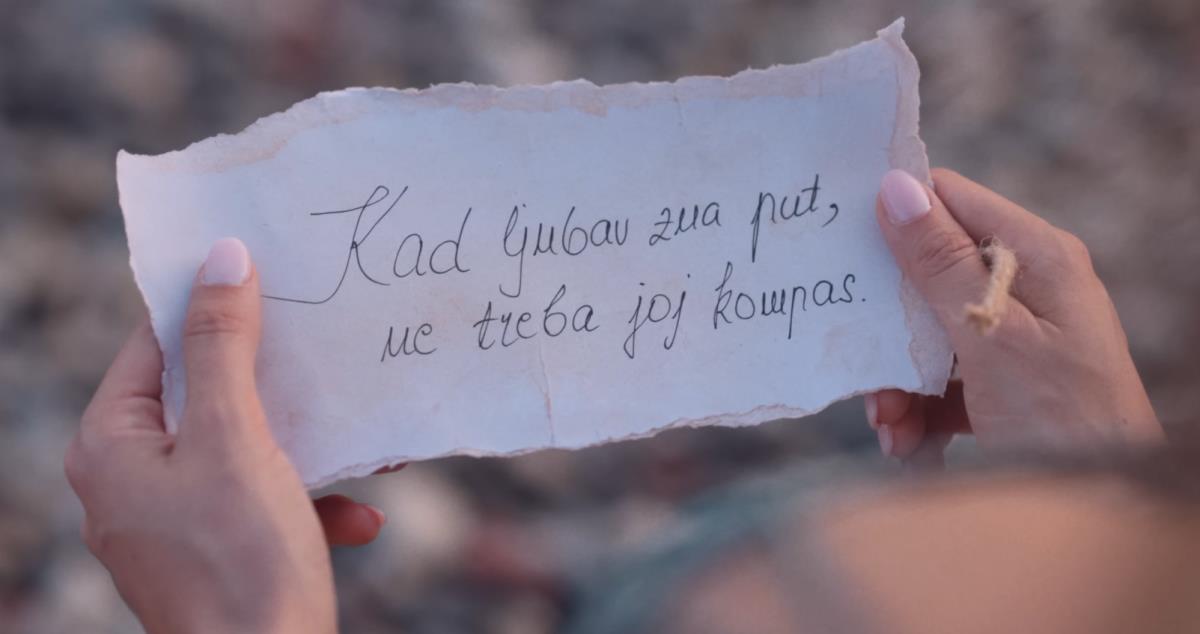 Kad ljubav zna put,
ne treba joj kompas.